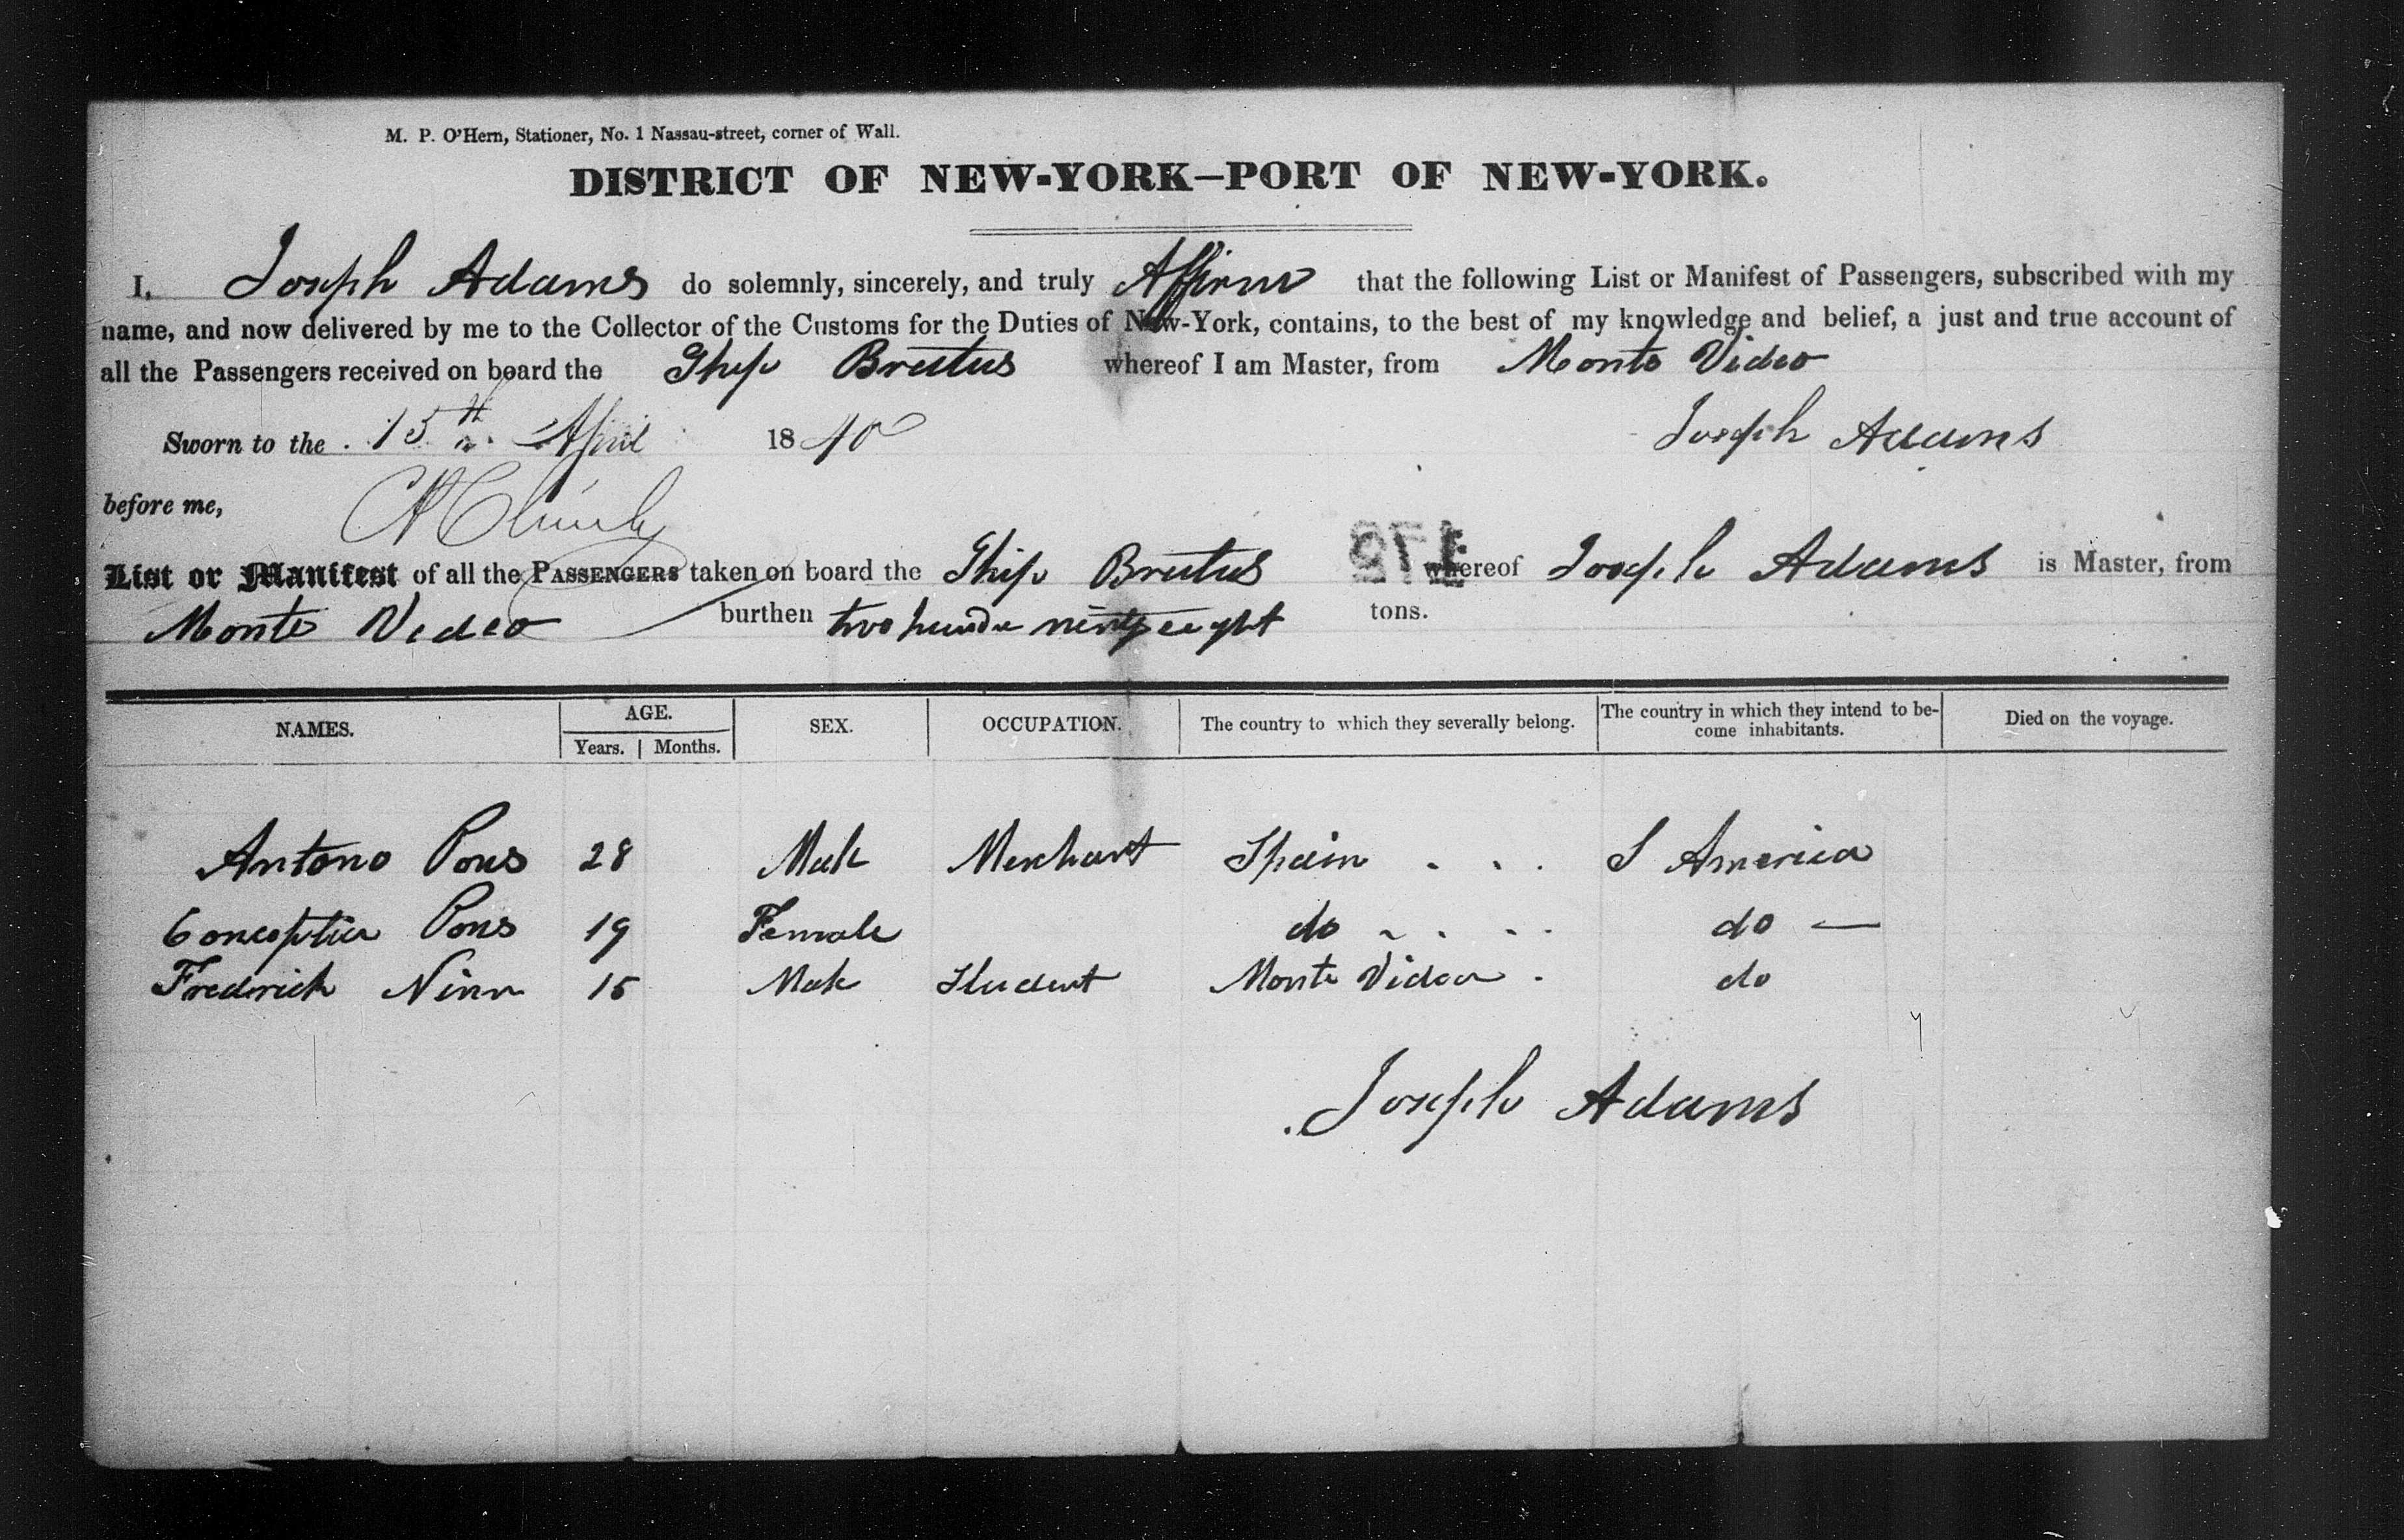 M. P. O'Hern, Stationer, No. 1 Nassau-street, corner of Wall.
DISTRICT OF NEW-YORK—PORT OF NEW-YORK.
I, Joseph Adams do solemnly, sincerely, and truly Affirm that the following List or Manifest of Passengers, subscribed with my
name, and now delivered by me to the Collector of the Customs for the Duties of New-York, contains, to the best of my knowledge and belief, a just and true account of
all the Passengers received on board the Ship Brutus whereof I am Master, from Monte Video
Sworn to the 15th April 1840 Joseph Adams
before me,
List or Manifest of all the PASSENGERS taken on board the Ship Brutus whereof Joseph Adams is Master, from
Monte Video burthen two hundr ninty eight tons.
NAMES. AGE. SEX. OCCUPATION. The country to which they severally belong. The country in which they intend to be-come inhabitants. Died on the voyage.
Years. Months.
Antono Pons 28 Male Merchant Spain . . . S America
Conceptia Pons 19 Female do - . . . do —
Frederick 15 Male Student Monte Video . do
Joseph Adams